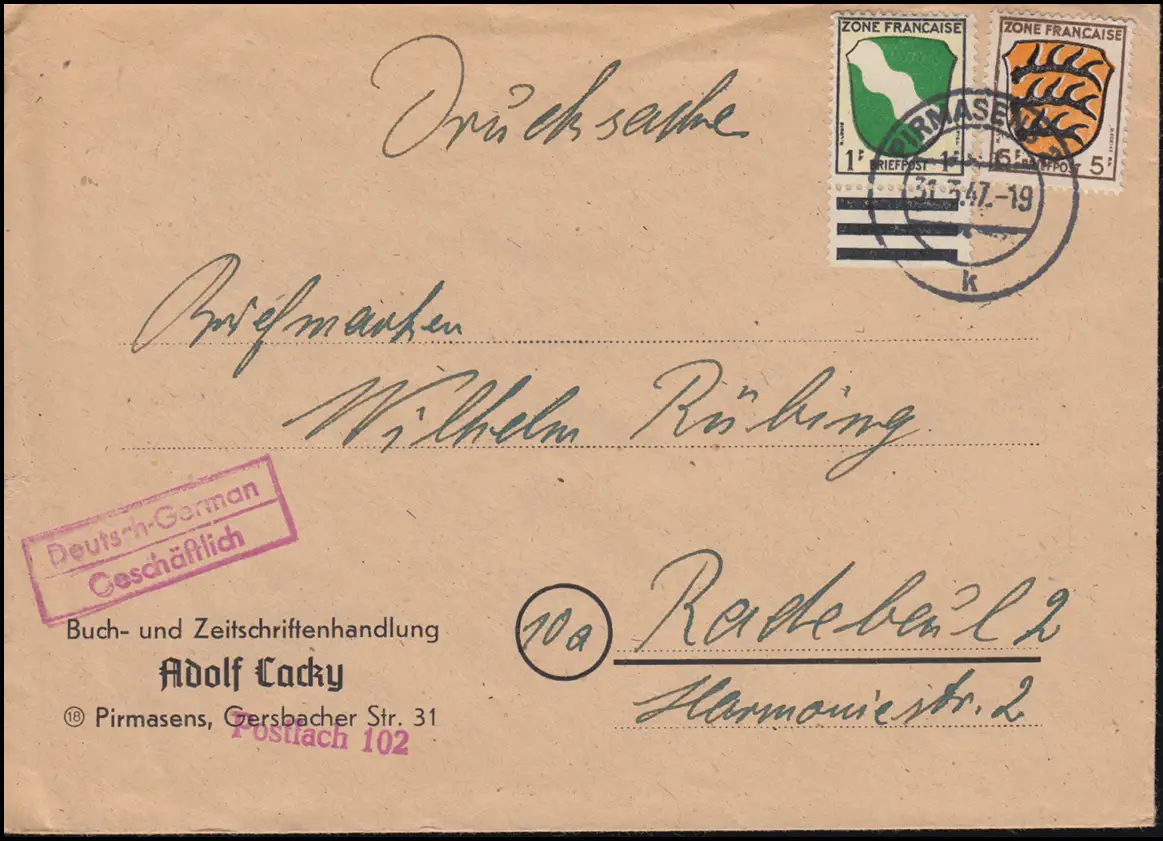 ZONE FRANCAISE
1F BRIEFPOST 1F
ZONE FRANCAISE
5F BRIEFPOST 5F
PIRMASENS
47.-19
k
Drucksache
Briefmarken
Wilhelm Rübing
Deutsch-German
Geschäftlich
10a Radebeul 2
Harmoniestr. 2
Buch- und Zeitschriftenhandlung
Adolf Lacky
18 Pirmasens, Gersbacher Str. 31
Postfach 102